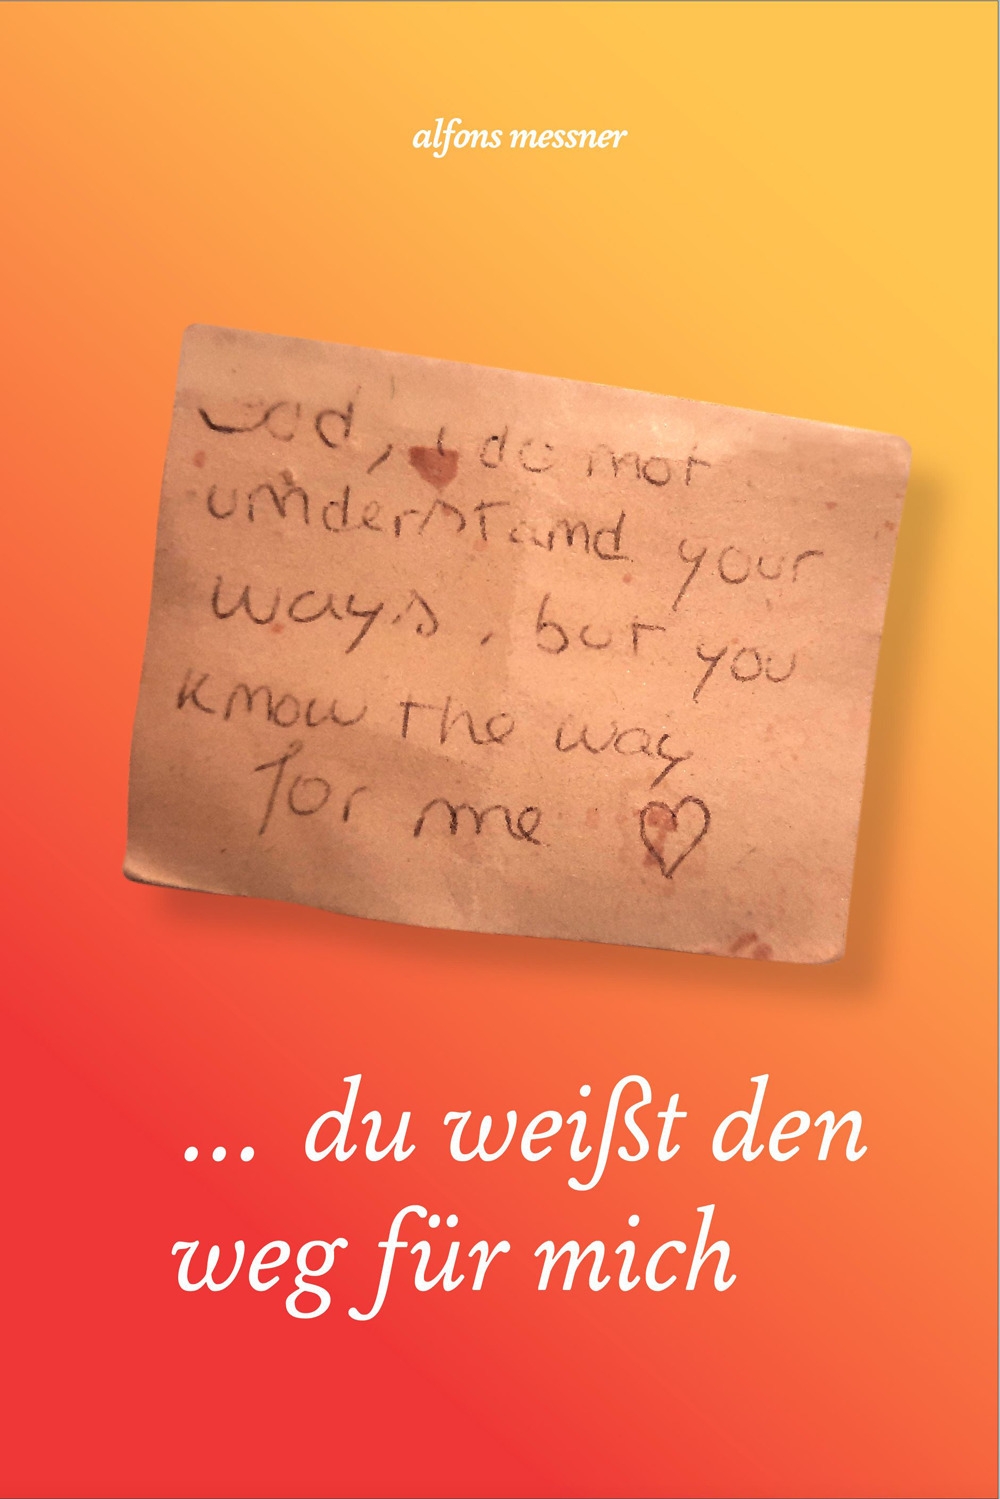 alfons messner
God, i do not
understand your
ways, but you
know the way
for me
... du weißt den
weg für mich